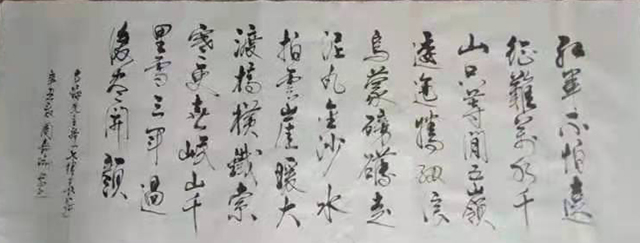 紅軍不怕遠
征難萬水千
山只等閒五嶺
逶迤騰細浪
烏蒙磅礴走
泥丸金沙水
拍雲崖暖大
渡橋橫鐵索
寒更喜岷山千
里雪三軍過
後盡開顏
七律長征